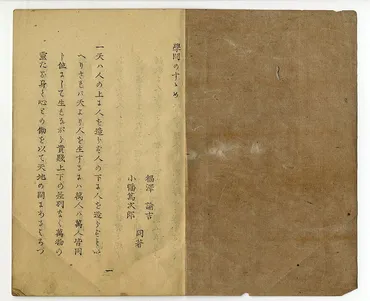 學問のすゝめ
福澤諭吉
小幡篤次郎 同著
一天ハ人の上に人を造らず人の下に人を造らずとい
へりされバ天より人を生ずるにハ萬人ハ萬人皆同
じ位にして生れながら貴賤上下の差別なく萬物の
靈たる身と心との働を以て天地の間にあるよろづ
一